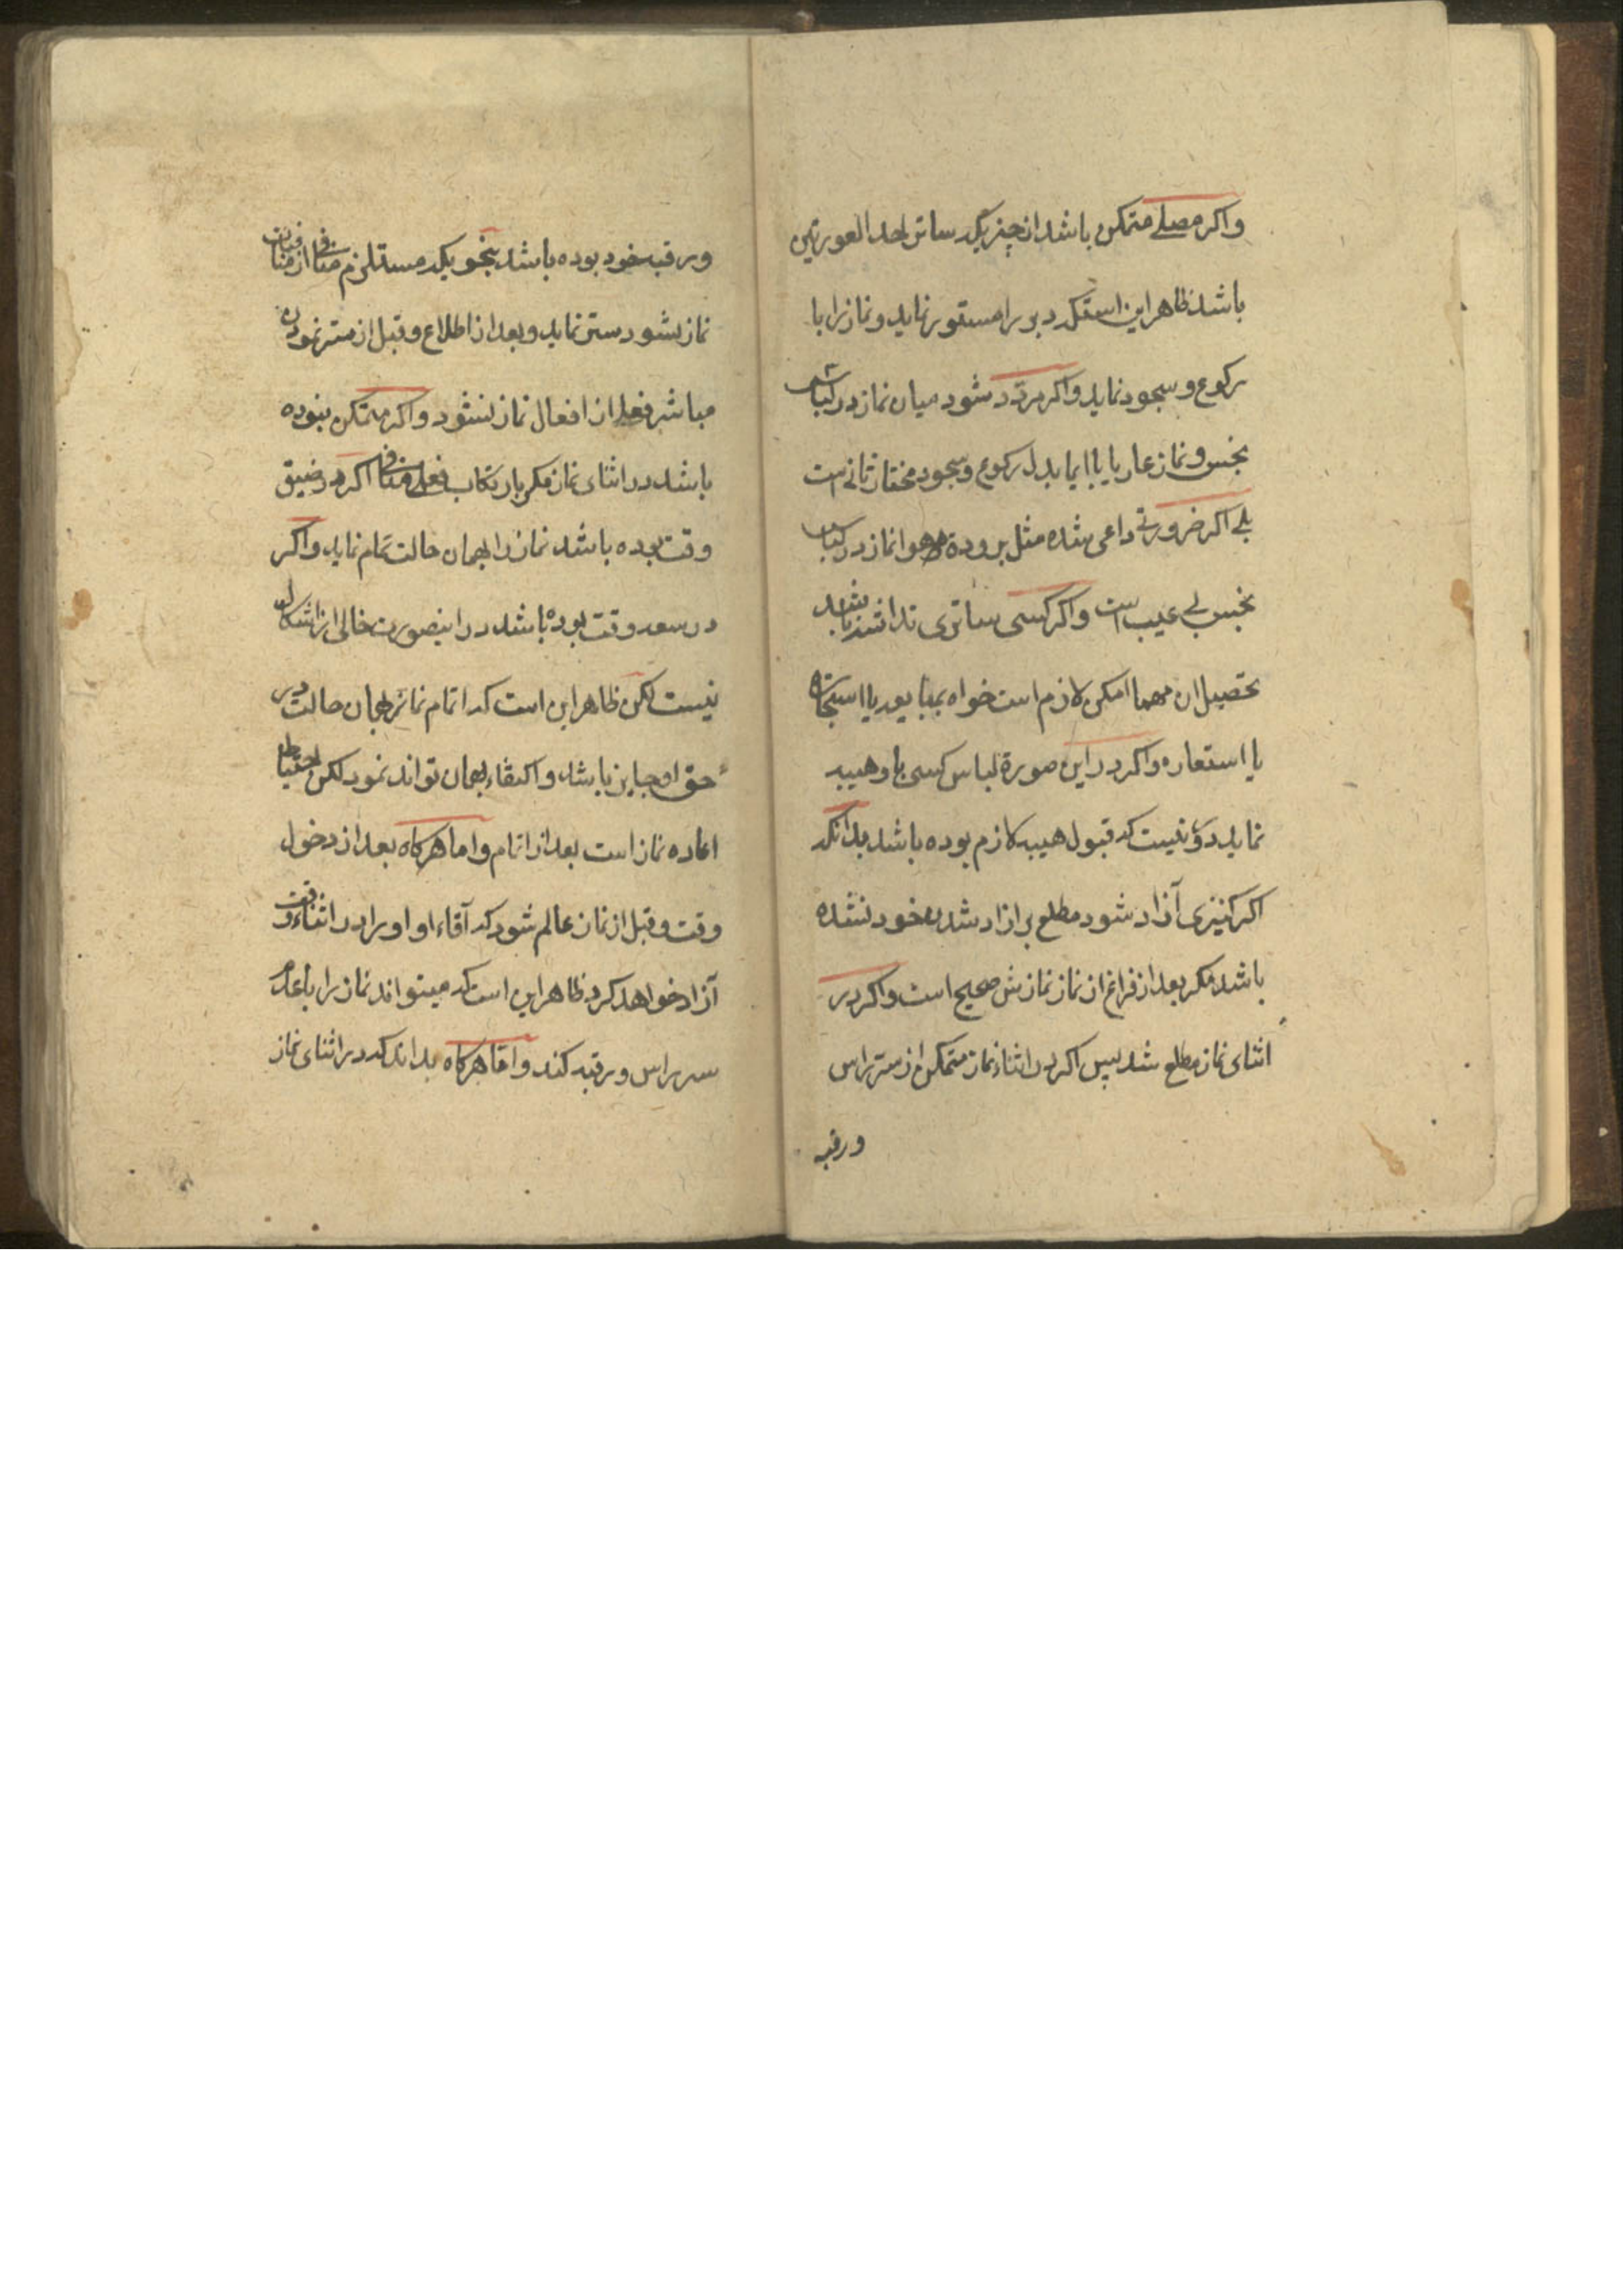 واکر مصلے متمکن باشد از چیزیکه ساتر احد العورتین
باشد ظاهر این استکه دبر را مستور نماید و نماز را با
رکوع و سجود نماید واکر مردد شود میان نماز در لباس
نجس و نماز عاریا با ایما بدل رکوع و سجود مختار ثانی است
بلے اکر ضرورتے داعی شده مثل برودة هوا نماز در لباس
نجس بی عیب است واکر کسی ساتری نداشته باشد
تحصیل ان مهما امکن لازم است خواه بمبایعه یا استیجاره
یا استعاره واکر در این صورة لباس کسی باو هبیه
نماید دور نیست که قبول هبیه لازم بوده باشد بدانکه
اکر کنیزی آزاد شود مطلع بر ازاد شدن خود نشده
باشد مکر بعد از فراغ از نماز نمازش صحیح است واکر در
اثنای نماز مطلع شد پس اکر در اثناء نماز متمکن از ستر راس
ورقبه
ورقبه خود بوده باشد بنحویکه مستلزم منافی از منافیات
نماز نشود ستر نماید و بعد از اطلاع و قبل از ستر نمودن
مباشر فعلی از افعال نماز نشود واکر متمکن نبوده
باشد در اثنای نماز مکر بارتکاب فعل منافی اکر در ضیق
وقت بوده باشد نماز را بهمان حالت تمام نماید واکر
در سعه وقت بوده باشد در اینصورت خالی از اشکال
نیست لکن ظاهر این است که اتمام نماز بهمان حالت در
حق او جایز باشد و اکتفاء بهمان تواند نمود لکن احتیاط
اعاده نماز است بعد از اتمام و اما هرکاه بعد از دخول
وقت و قبل از نماز عالم شود که آقاء او او را در اثناء وقت
آزاد خواهد کرد ظاهر این است که میتواند نماز را با عدم
ستر راس و رقبه کند و اما هرکاه بداند که در اثنای نماز